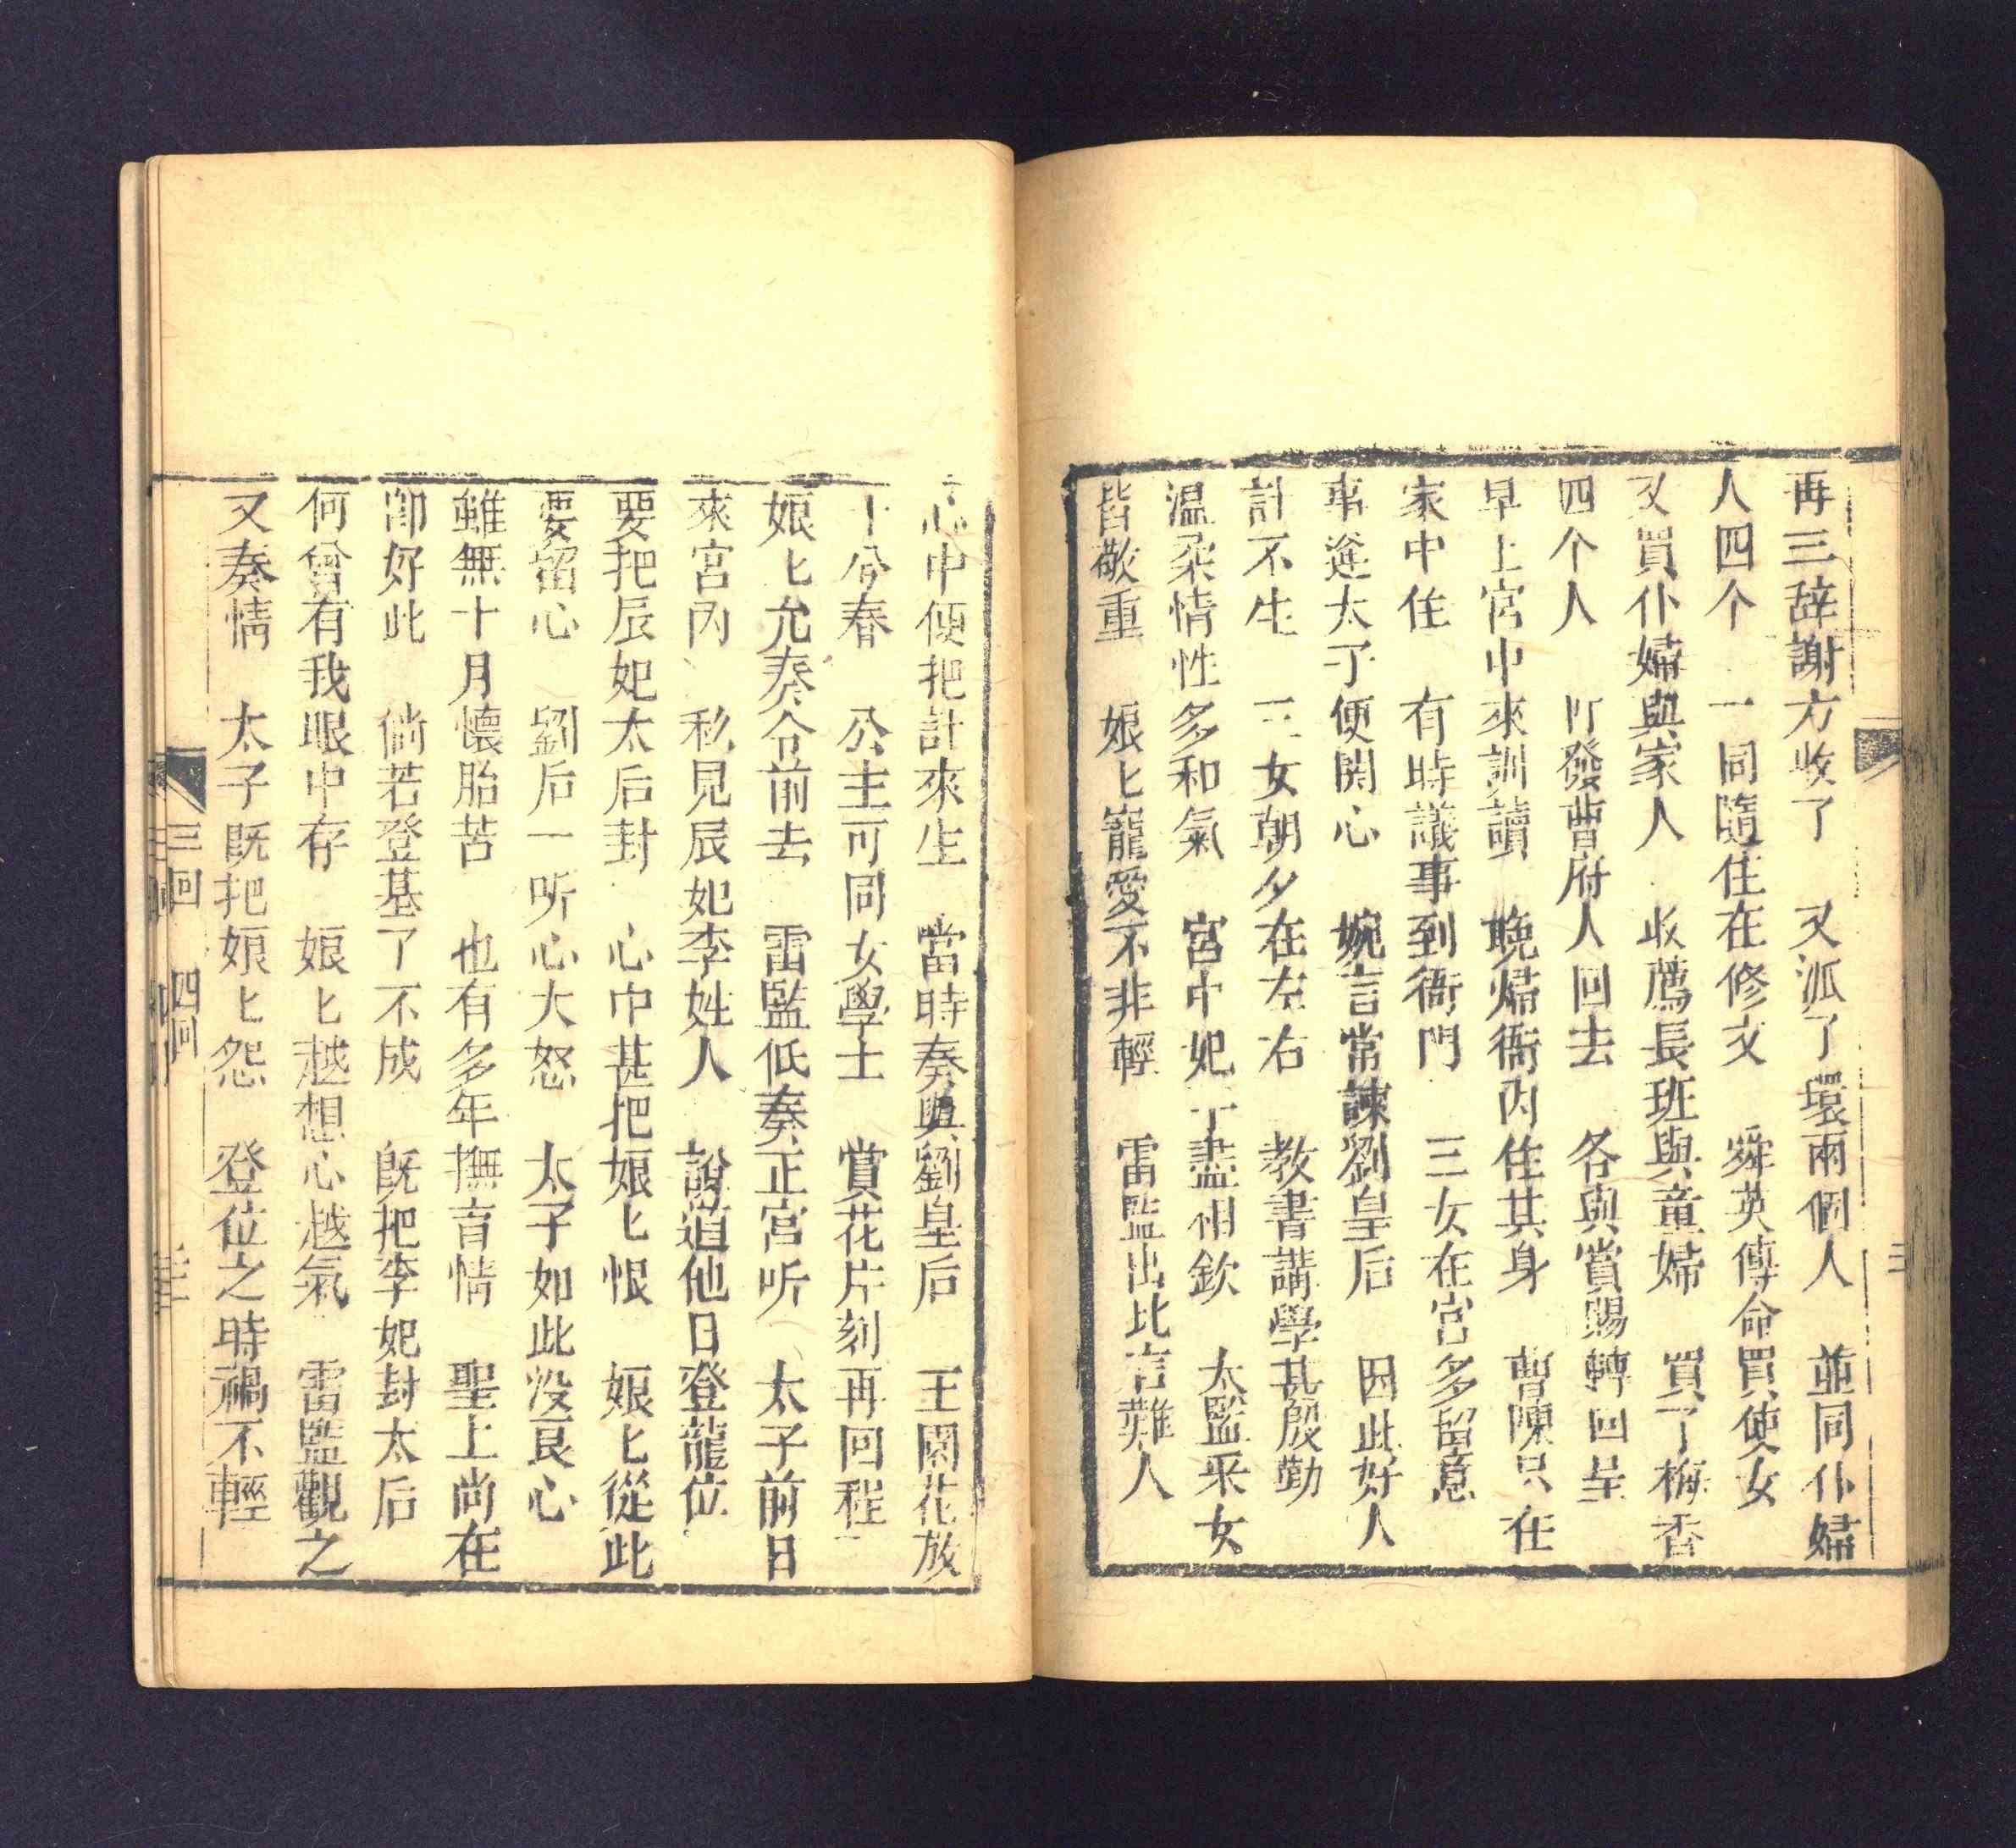 再三辞謝方收了　又派了環兩個人　並同仆婦
人四个　一同隨住在修文　舜英傳命買使女
又買仆婦與家人　收薦長班與童婦　買了梅香
四个人　打發曹府人回去　各與賞賜轉回呈
早上宮中來訓讀　晚歸衙內住其身　曹陳只在
家中住　有時議事到衙門　三女在宮多留意
事逆太子便開心　婉言常諫劉皇后　因此好人
計不生　三女朝夕在左右　教書講學甚殷勤
溫柔情性多和氣　宮中妃子盡相欽　太監采女
皆敬重　娘匕寵愛不非輕　雷監出比言難人
心中便把計來生　當時奏與劉皇后　王園花放
十分春　公主可同女學士　賞花片刻再回程
娘匕允奏令前去　雷監低奏正宮听　太子前日
來宮內　私見辰妃李姓人　說道他日登龍位
要把辰妃太后封　心中甚把娘匕恨　娘匕從此
要留心　劉后一听心大怒　太子如此沒良心
雖無十月懷胎苦　也有多年撫育情　聖上尚在
卽好此　倘若登基了不成　旣把李妃封太后
何曾有我眼中存　娘匕越想心越氣　雷監觀之
又奏情　太子旣把娘匕怨　登位之時禍不輕
三回　四回